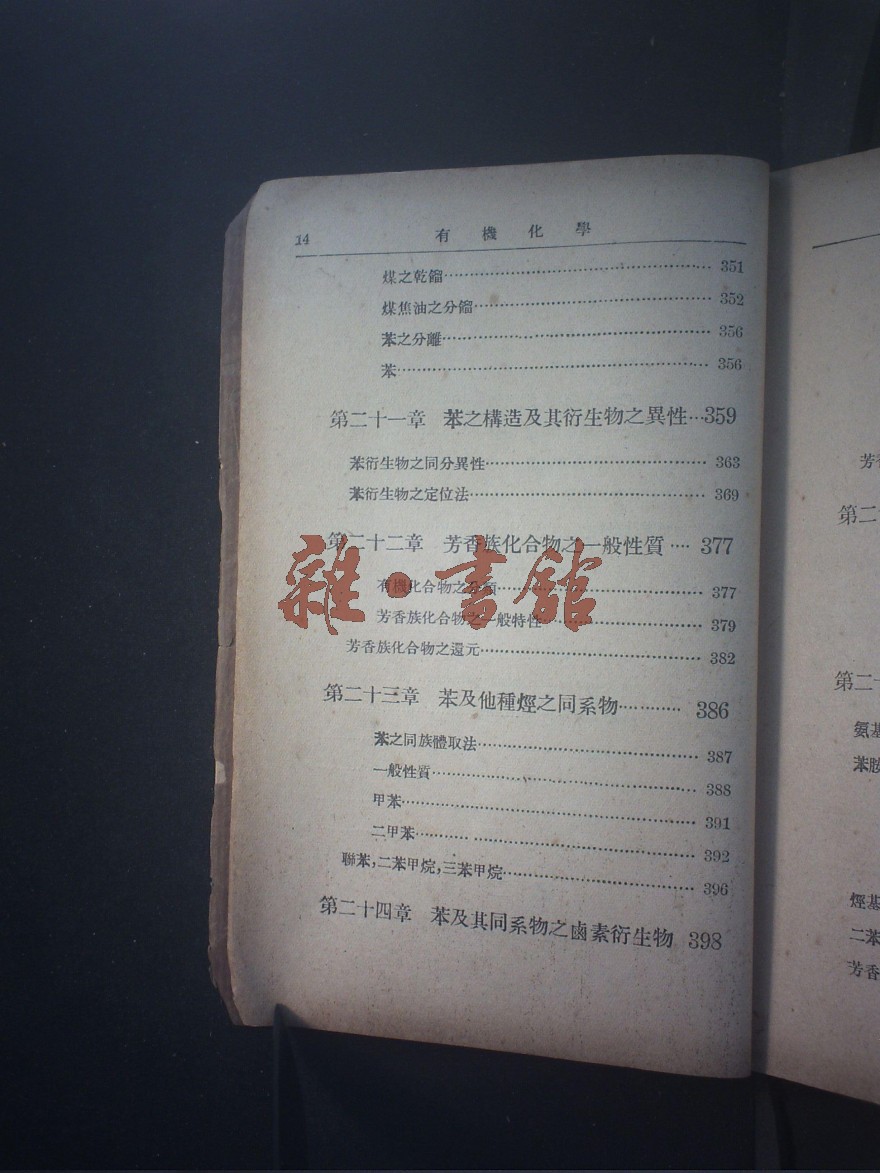 14 有機化學
煤之乾餾 351
煤焦油之分餾 352
苯之分離 356
苯 356
第二十一章 苯之構造及其衍生物之異性 359
苯衍生物之同分異性 363
苯衍生物之定位法 369
第二十二章 芳香族化合物之一般性質 377
有機化合物之分類 377
芳香族化合物之一般特性 379
芳香族化合物之還元 382
第二十三章 苯及他種烴之同系物 386
苯之同族體取法 387
一般性質 388
甲苯 391
二甲苯 392
聯苯,二苯甲烷,三苯甲烷 396
第二十四章 苯及其同系物之鹵素衍生物 398
雜·書舘
第二
第二
氨基
烴基
二苯
芳香